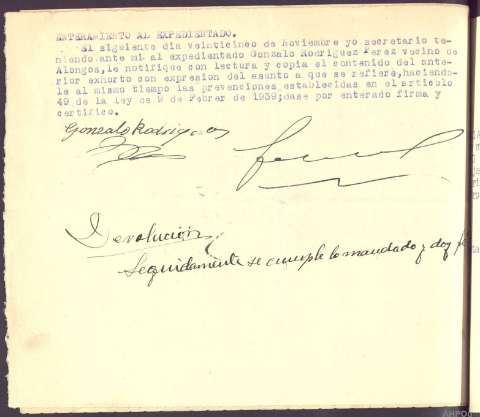 ENTERAMIENTO AL EXPEDIENTADO.
El sigeiente dia veinticinco de Noviembre yo secretario te-
niendo ante mi al expedientado Gonzalo Rodriguez Perez vecino de
Alongos, le notifique con lectura y copia el contenido del ante-
rior exhorto con expresion del asunto a que se refiere, haciendo-
le al mismo tiempo las prevenciones establecidas en el articulo
49 de la ley de 9 de Febrer de 1939; dase por enterado firma y
certifico.
Gonzalo Rodrig
Devolucion
Seguidamente se cumple lo mandado y doy fe
AHPOU